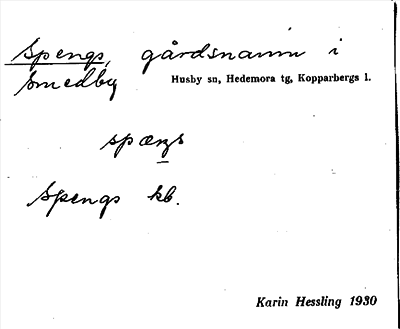 Spengs, gårdsnamn i
Smedby
Husby sn, Hedemora tg, Kopparbergs l.
spæŋs
Spengs kb.
Karin Hessling 1930